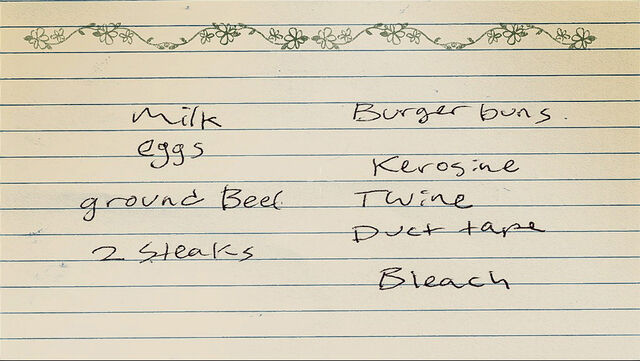 Milk
eggs
ground Beef
2 Steaks
Burger buns.
Kerosine
Twine
Duct tape
Bleach